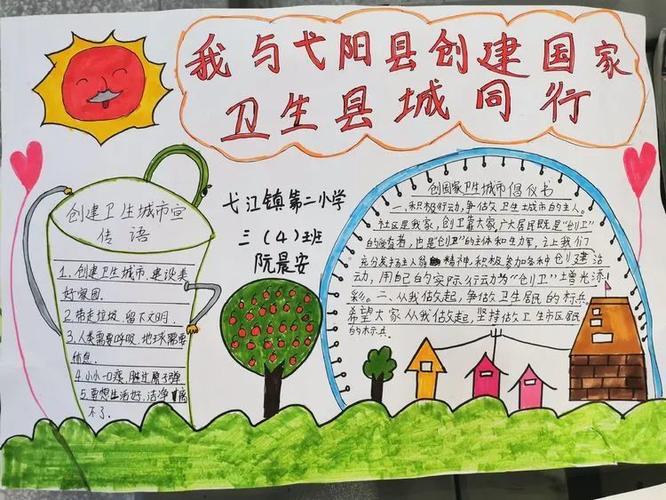 我与弋阳县创建国家
卫生县城同行
弋江镇第二小学
三(4)班
阮晨安
创建卫生城市宣
传语
1.创建卫生城市,建设美
好家园.
2.带走垃圾,留下文明.
3.人类需要呼吸,地球需要
休息.
4.小小一口痰,胜过原子弹
5.要想生活好,洁净
不了.
创国家卫生城市倡仪书
一.积极行动,争做卫生城市的主人。
社区是我家,创卫靠大家,广大居民既是“创卫”
的受益者,也是“创卫”的主体和生力军,
充分发扬主人翁精神,积极参加各种创建活
动,用自己的实际行动为“创卫”增光添
彩。二.从我做起,争做卫生居民的标兵。
希望大家从我做起,坚持做卫生市区居民
的标兵。